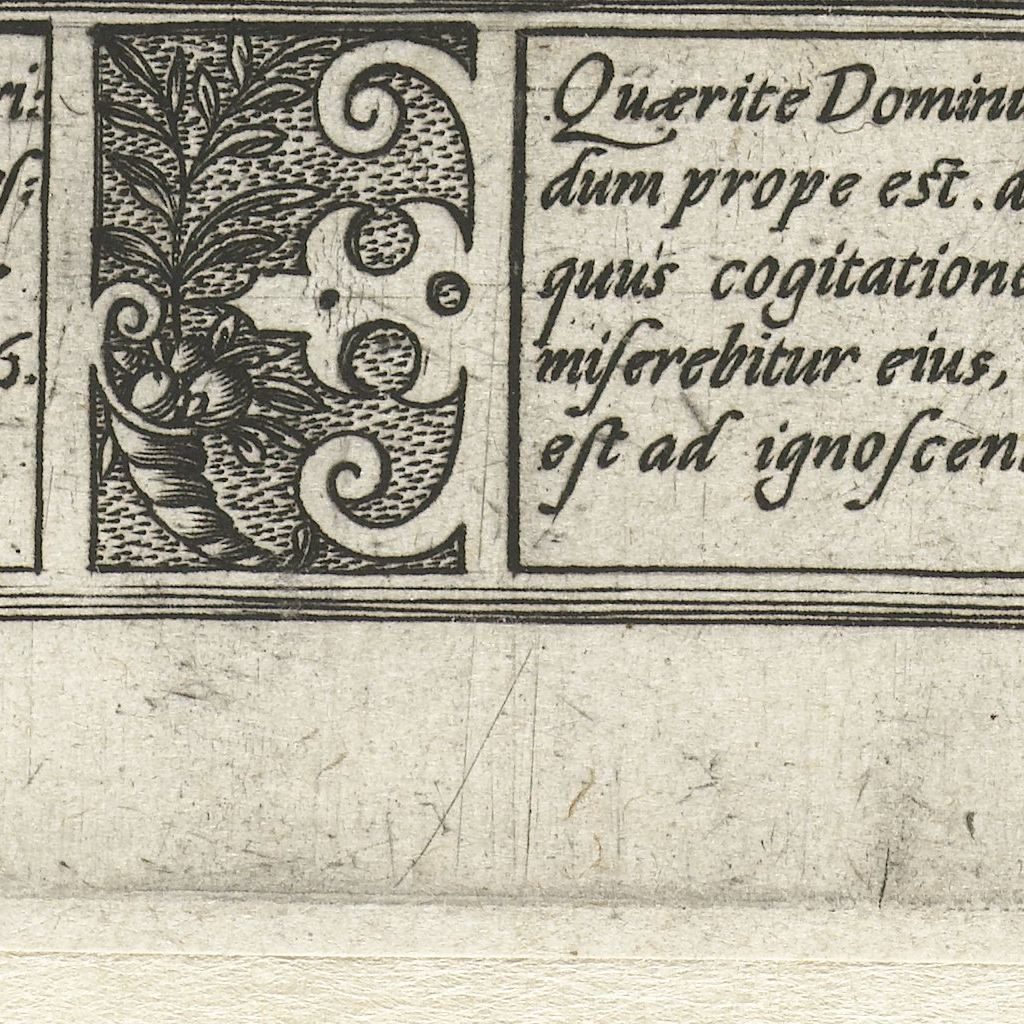 Quærite Dominu
dum prope est. a
quus cogitatione
miſerebitur eius,
eſt ad ignoſcen